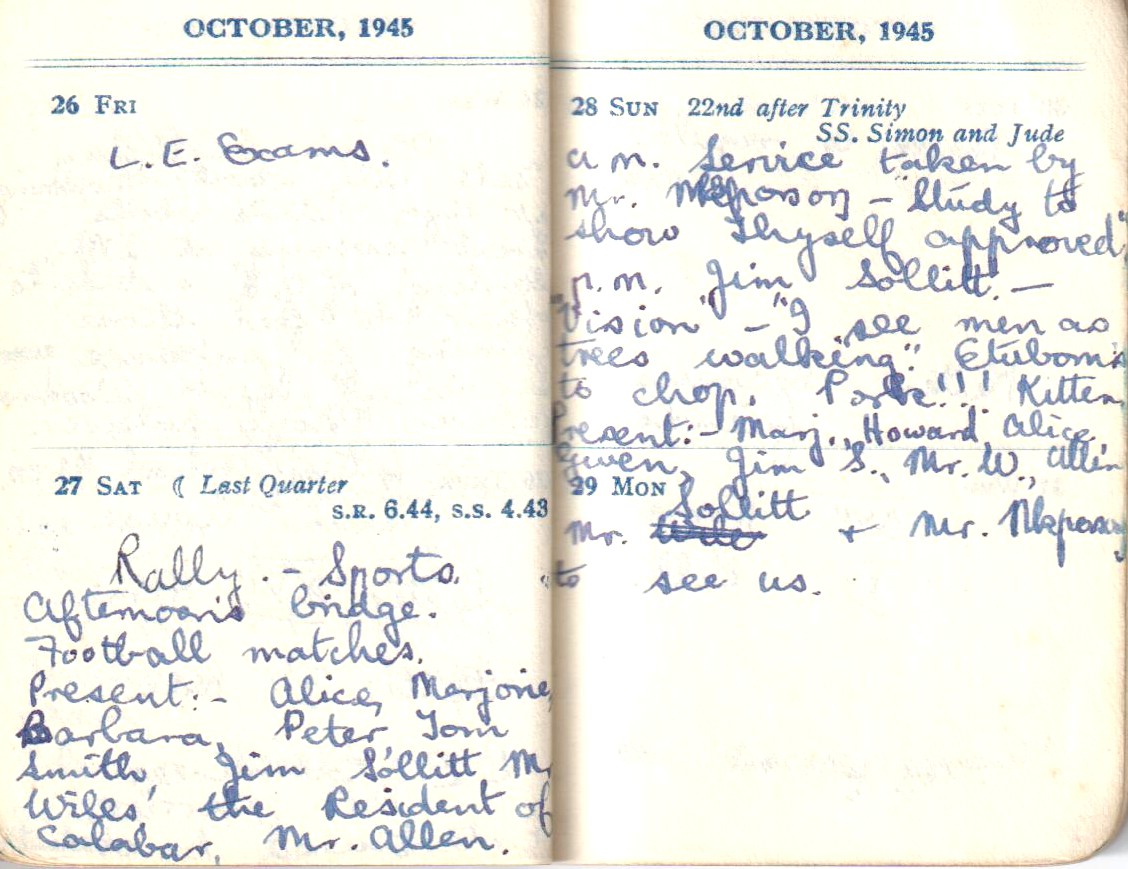 OCTOBER, 1945
26 FRI
L. E. Exams.
27 SAT ☾ Last Quarter
S.R. 6.44, S.S. 4.43
Rally. - Sports.
Afternoon's bridge.
Football matches.
Present:- Alice, Marjorie,
Barbara, Peter Tom
Smith Jim Sollitt Mr
Wiles' the Resident of
Calabar, Mr. Allen.
OCTOBER, 1945
28 SUN 22nd after Trinity
SS. Simon and Jude
a.m. Service taken by
Mr. Nkposong - "Study to
show thyself approved"
p.m. Jim Sollitt. —
"Vision" - "I see men as
trees walking". Etubom's
to chop. Pork!!! Kitten,
Present:- Marj., Howard, Alice,
Gwen, Jim S., Mr. W, Allen
29 MON
Sollitt
Mr. + Mr. Nkposong
to see us.